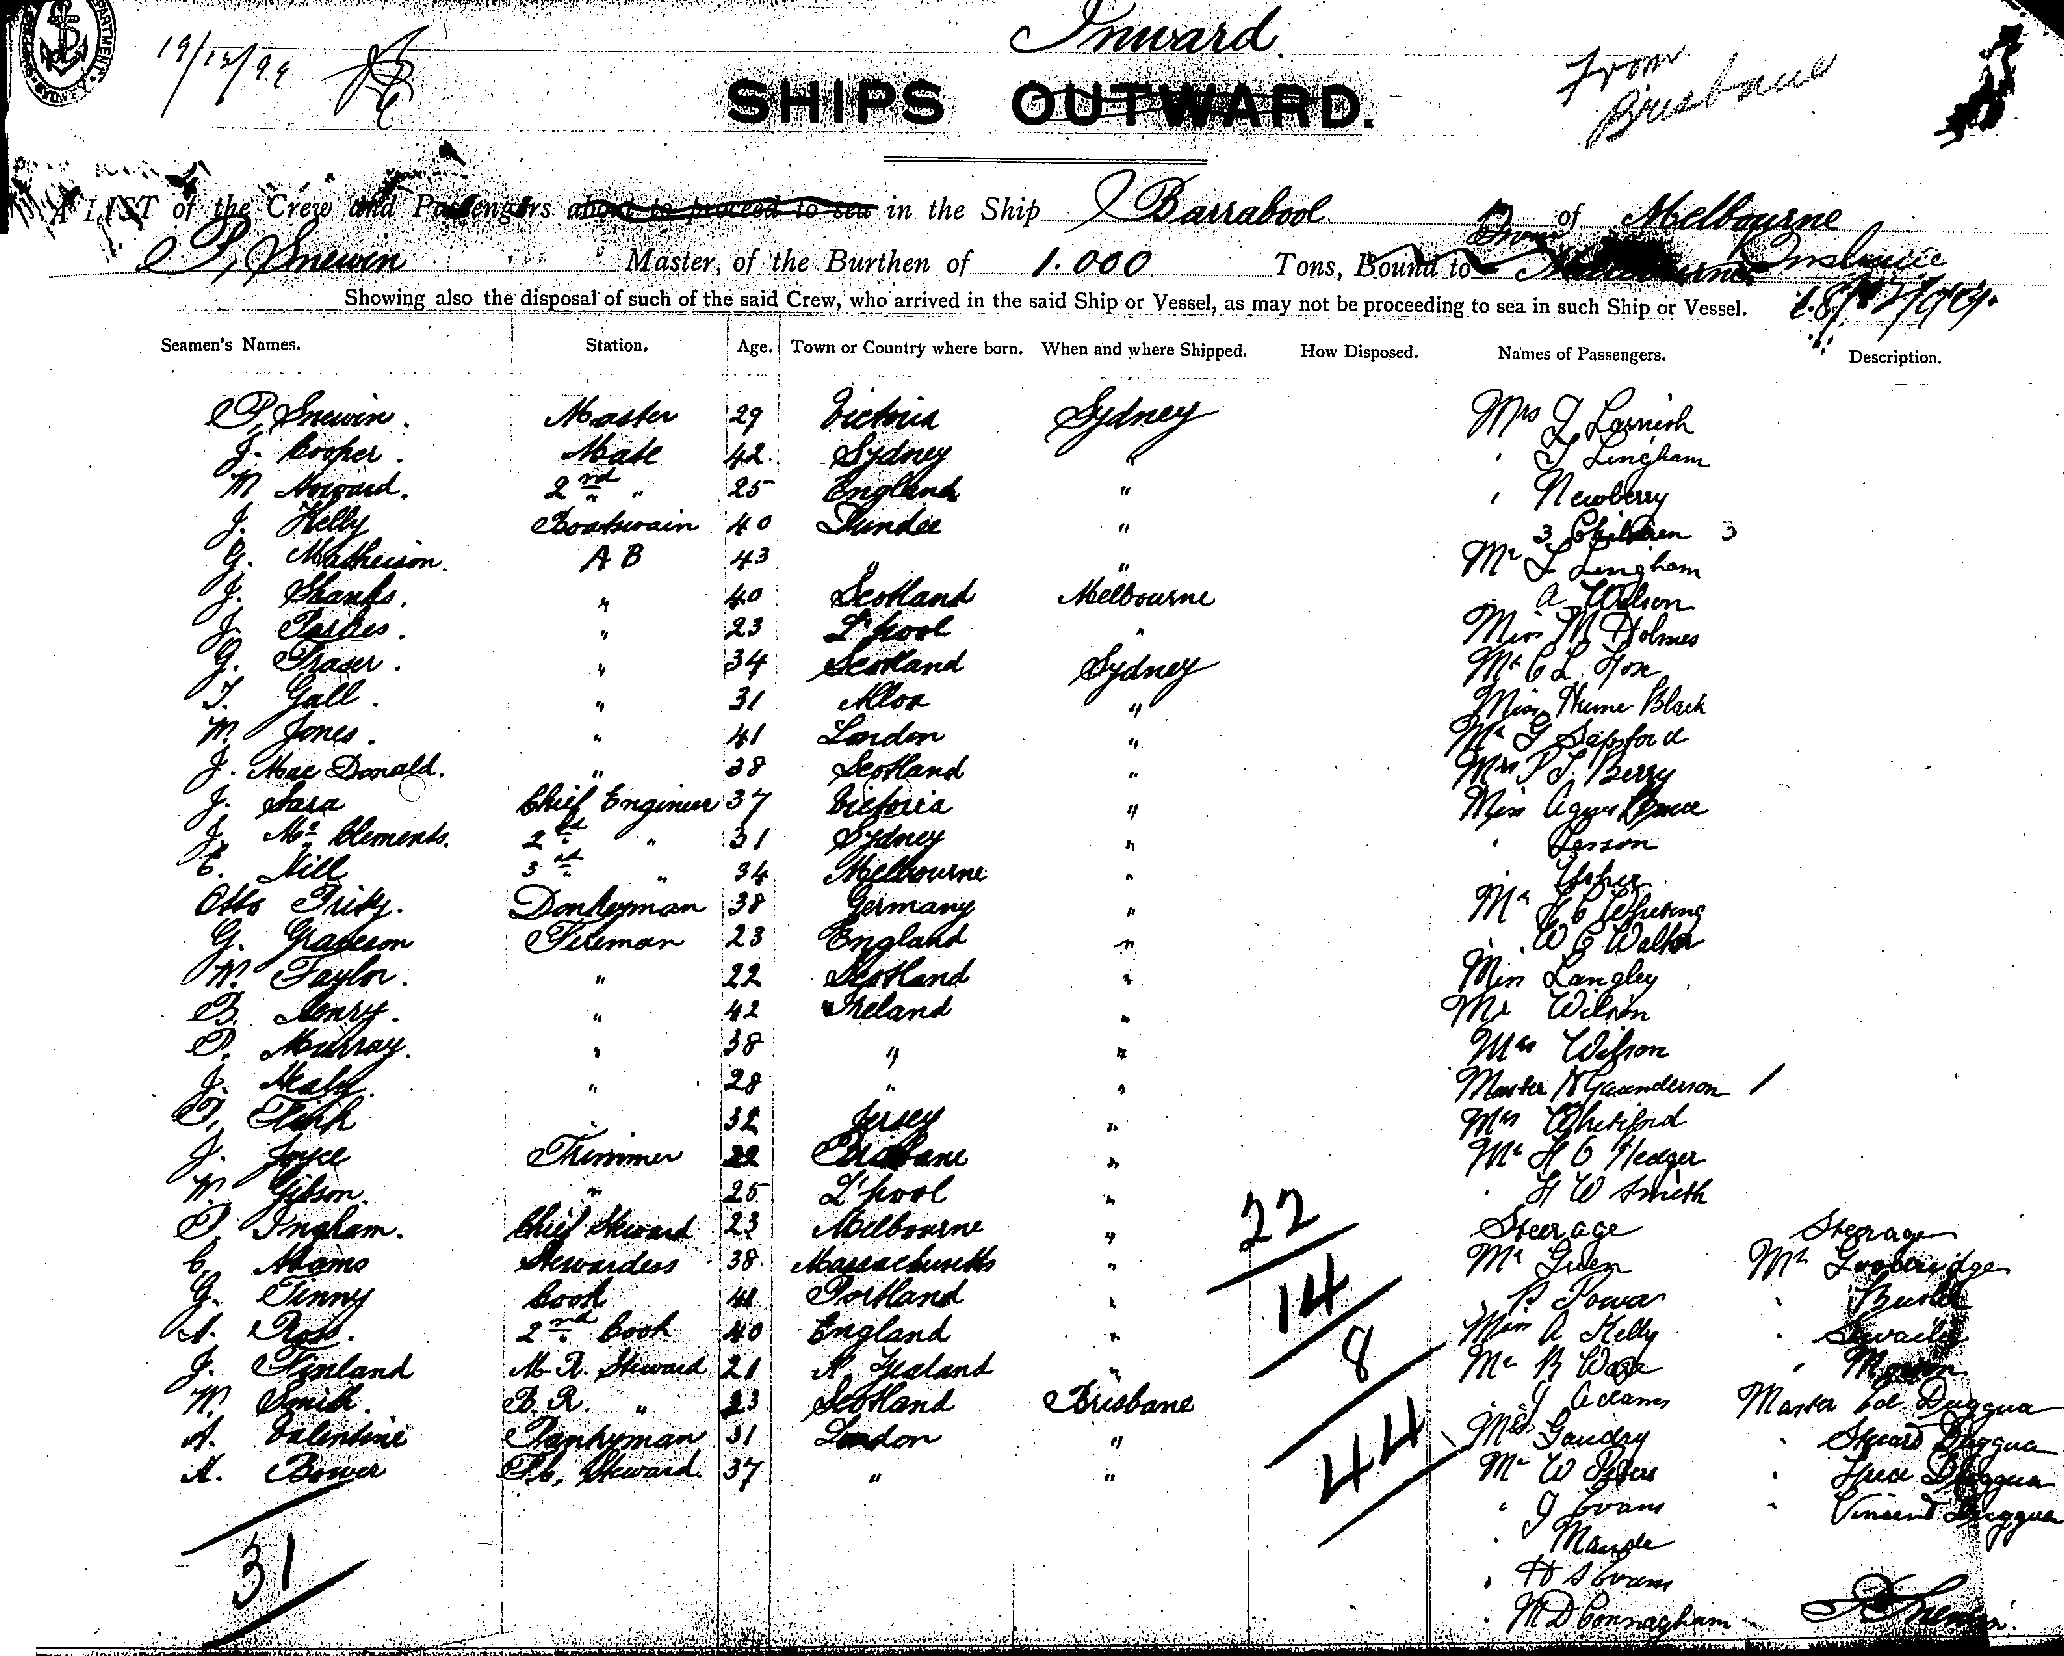 Inward.
19/12/99
From Brisbane
SHIPS OUTWARD.
A LIST of the Crew and Passengers about to proceed to sea in the Ship Barrabool of Melbourne
P. Snewin Master, of the Burthen of 1.000 Tons, Bound to From
Showing also the disposal of such of the said Crew, who arrived in the said Ship or Vessel, as may not be proceeding to sea in such Ship or Vessel.
Seamen's Names. Station. Age. Town or Country where born. When and where Shipped. How Disposed. Names of Passengers. Description.
P. Snewin. Master 29 Victoria Sydney Mrs Larnish
J. Cooper. Mate 42. Sydney " " Lingham
M Howard. 2nd " 25 England " " Newberry
J. Kelly Boatswain 40 Dundee " 3 Children 3
G. Matheison. A B 43 " " Mr Lingham
J. Shanks. " 40 Scotland Melbourne A Wilson
J. " 23 L'pool " Miss M Holmes
G. Fraser. " 34 Scotland Sydney Mr C L Fox
T. Gall. " 31 Alloa " Miss Hume Black
W. Jones. " 41 London " Mr G Sapsford
J. Mac Donald. " 38 Scotland " Mrs P T Berry
J. Sara Chief Engineer 37 Victoria " Miss Agnes
J. Mc Clements. 2nd " 31 Sydney "
E. Hill 3rd " 34 Melbourne " " Usher
Otto Donkeyman 38 Germany " Mr Whiting
G. Graveson Fireman 23 England " " W C Walker
W. Taylor. " 22 Scotland " Miss Langley
B. Henry. " 42 Ireland " Mr Wilson
P. Murray. " 38 " " Mrs Wilson
J. Healy. " 28 " " Master N Gaunderson /
32 Jersey " Mrs Whitford
J. Joyce Trimmer 22 Brisbane " Mr H O Hedger
W. Gibson. " 25 L'pool " " H W Smith
P. Ingham. Chief Steward 23 Melbourne " 22 Steerage Steerage
C. Adams Stewardess 38. Massachusetts " Mr Green Mr
G. Tinny Cook 41 Portland " 14 " P. Power "
A. Ross. 2nd Cook 40 England " Miss A Kelly "
J. Finland M. R. Steward 21 N Zealand " 8 Mr "
W. Smith. B. R. " 23 Scotland Brisbane " J Adams Master Duggua
A. Valentine Pantryman 31 London " 44 Gaudry " Duggua
A. Bower Steward. 37 " " Mr W Peters " Duggua
" J Evans " Vincent Duggua
31 " Maude
" H S Evans
" M D Connagham P Snewin.